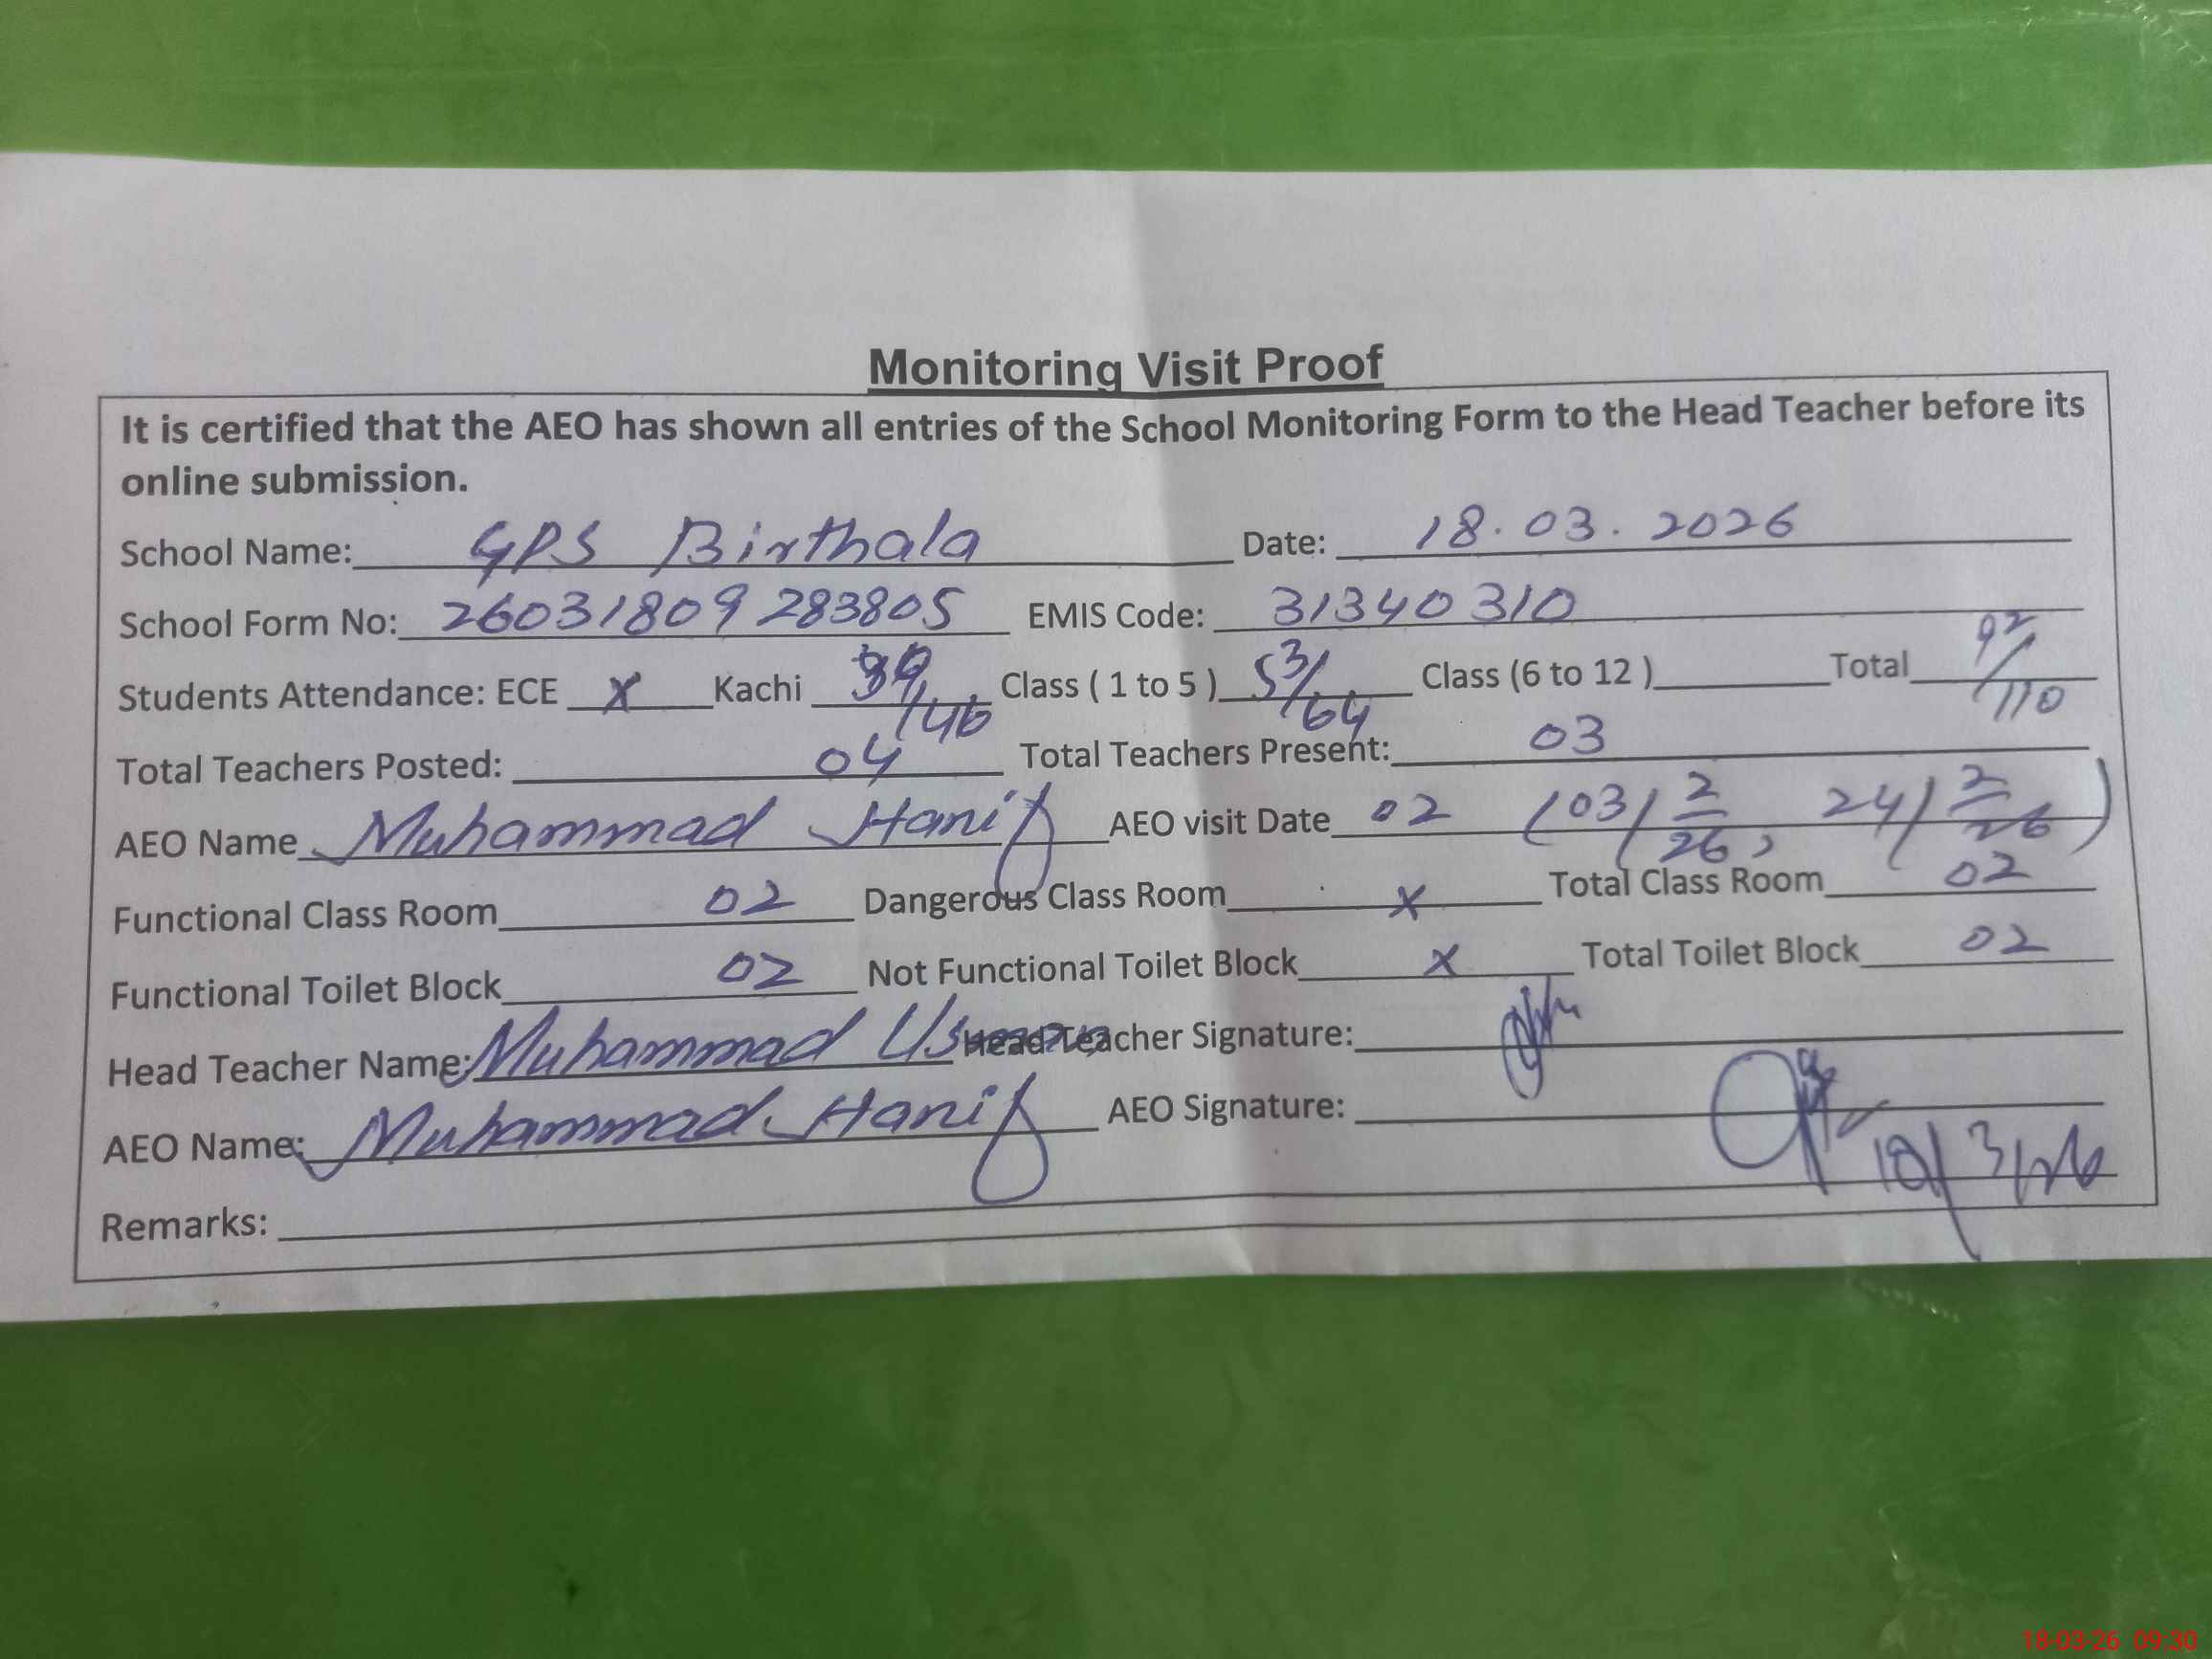 Monitoring Visit Proof
It is certified that the AEO has shown all entries of the School Monitoring Form to the Head Teacher before its
online submission.
School Name: GPS Birthala Date: 18.03.2026
School Form No: 26031809283805 EMIS Code: 31340310
Students Attendance: ECE X Kachi 39/46 Class ( 1 to 5 ) 53/64 Class (6 to 12 ) Total 92/110
Total Teachers Posted: 04 Total Teachers Present: 03
AEO Name Muhammad Hanif AEO visit Date 02 (03/2/26, 24/2/26)
Functional Class Room 02 Dangerous Class Room X Total Class Room 02
Functional Toilet Block 02 Not Functional Toilet Block X Total Toilet Block 02
Head Teacher Name: Muhammad Usman Head Teacher Signature:
AEO Name: Muhammad Hanif AEO Signature:
18/3/26
Remarks:
18-03-26 09:30